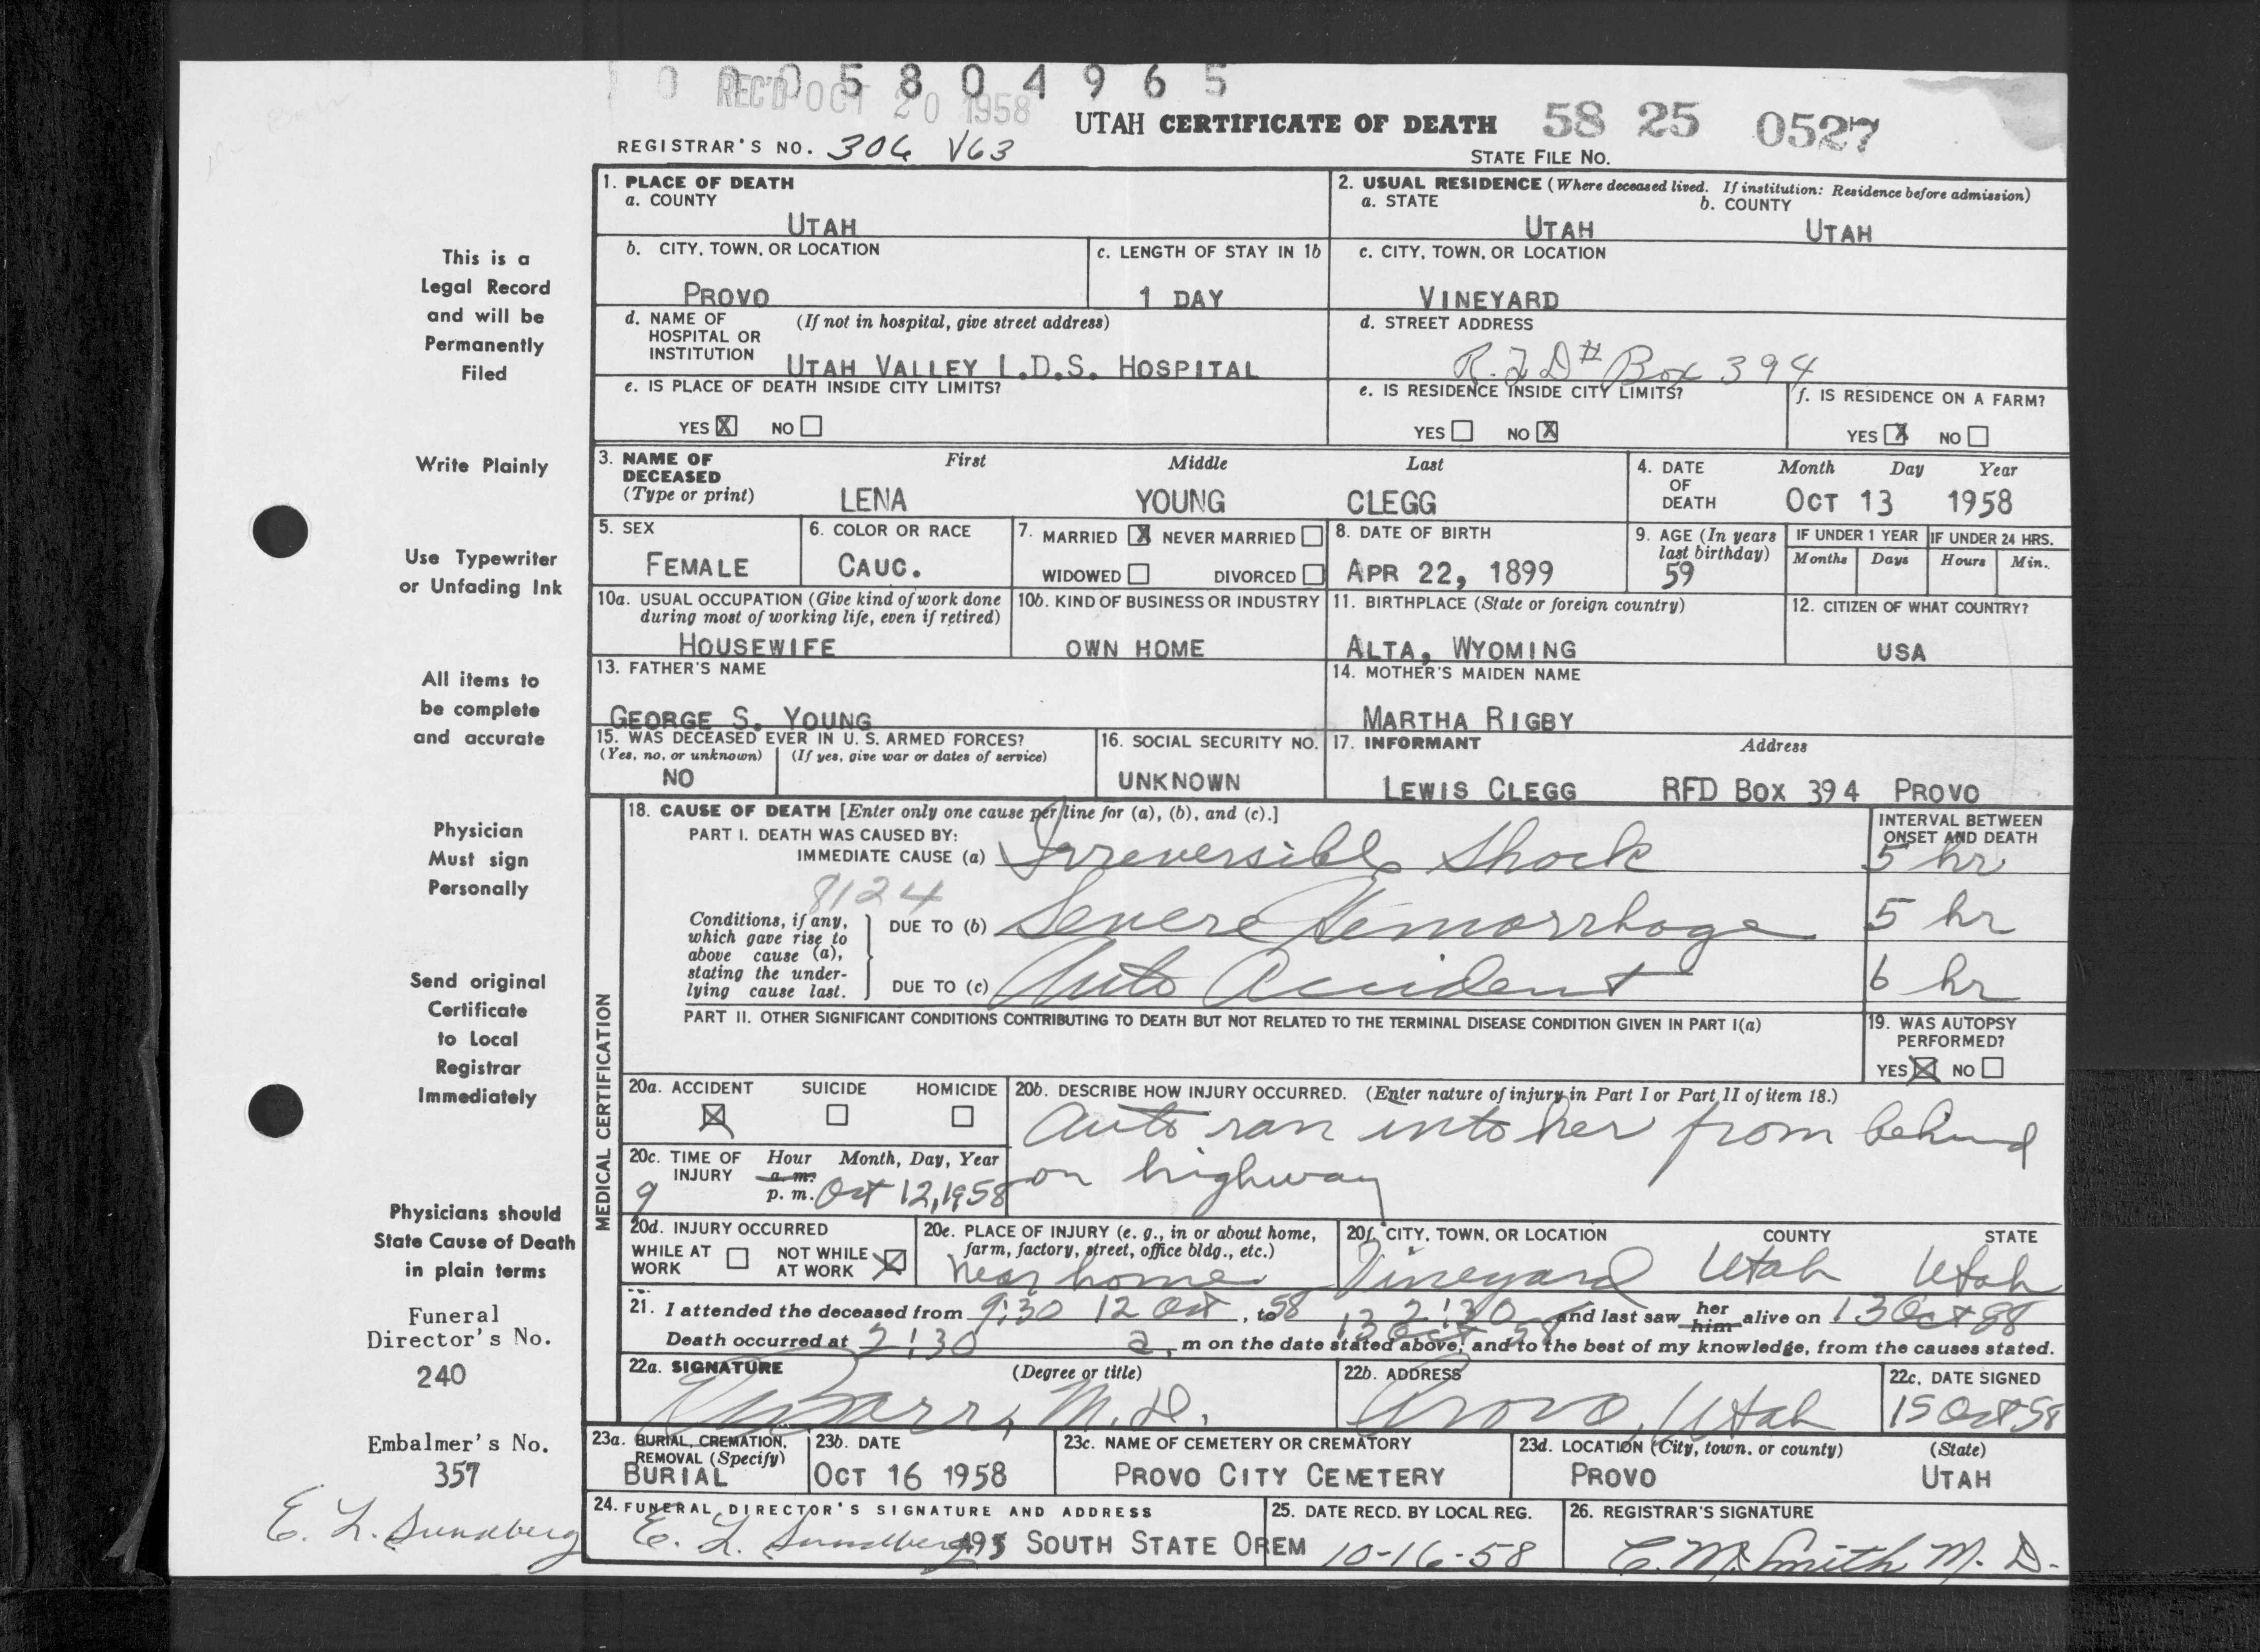 0 0 0 5 8 0 4 9 6 5
REC'D OCT 20 1958
UTAH CERTIFICATE OF DEATH 58 25 0527
REGISTRAR'S NO. 306 V63
STATE FILE NO.
1. PLACE OF DEATH
a. COUNTY
UTAH
2. USUAL RESIDENCE (Where deceased lived. If institution: Residence before admission)
a. STATE b. COUNTY
UTAH UTAH
b. CITY, TOWN, OR LOCATION
PROVO
c. LENGTH OF STAY IN 1b
1 DAY
c. CITY, TOWN, OR LOCATION
VINEYARD
d. NAME OF HOSPITAL OR INSTITUTION (If not in hospital, give street address)
UTAH VALLEY L.D.S. HOSPITAL
d. STREET ADDRESS
R.F.D # Box 394
e. IS PLACE OF DEATH INSIDE CITY LIMITS?
YES X NO
e. IS RESIDENCE INSIDE CITY LIMITS?
YES NO X
f. IS RESIDENCE ON A FARM?
YES X NO
3. NAME OF DECEASED (Type or print)
First Middle Last
LENA YOUNG CLEGG
4. DATE OF DEATH
Month Day Year
OCT 13 1958
5. SEX
FEMALE
6. COLOR OR RACE
CAUC.
7. MARRIED X NEVER MARRIED
WIDOWED DIVORCED
8. DATE OF BIRTH
APR 22, 1899
9. AGE (In years last birthday)
59
IF UNDER 1 YEAR
Months Days
IF UNDER 24 HRS.
Hours Min.
10a. USUAL OCCUPATION (Give kind of work done during most of working life, even if retired)
HOUSEWIFE
10b. KIND OF BUSINESS OR INDUSTRY
OWN HOME
11. BIRTHPLACE (State or foreign country)
ALTA, WYOMING
12. CITIZEN OF WHAT COUNTRY?
USA
13. FATHER'S NAME
GEORGE S. YOUNG
14. MOTHER'S MAIDEN NAME
MARTHA RIGBY
15. WAS DECEASED EVER IN U. S. ARMED FORCES?
(Yes, no, or unknown) (If yes, give war or dates of service)
NO
16. SOCIAL SECURITY NO.
UNKNOWN
17. INFORMANT Address
LEWIS CLEGG RFD BOX 394 PROVO
MEDICAL CERTIFICATION
18. CAUSE OF DEATH [Enter only one cause per line for (a), (b), and (c).]
INTERVAL BETWEEN ONSET AND DEATH
PART I. DEATH WAS CAUSED BY:
IMMEDIATE CAUSE (a) Irreversible Shock 5 hr
8124
Conditions, if any, which gave rise to above cause (a), stating the underlying cause last.
DUE TO (b) Severe Hemorrhage 5 hr
DUE TO (c) Auto Accident 6 hr
PART II. OTHER SIGNIFICANT CONDITIONS CONTRIBUTING TO DEATH BUT NOT RELATED TO THE TERMINAL DISEASE CONDITION GIVEN IN PART I(a)
19. WAS AUTOPSY PERFORMED?
YES X NO
20a. ACCIDENT SUICIDE HOMICIDE
X
20b. DESCRIBE HOW INJURY OCCURRED. (Enter nature of injury in Part I or Part II of item 18.)
Auto ran into her from behind
on highway
20c. TIME OF INJURY Hour Month, Day, Year
9 a. m. p. m. Oct 12, 1958
20d. INJURY OCCURRED
WHILE AT WORK NOT WHILE AT WORK X
20e. PLACE OF INJURY (e. g., in or about home, farm, factory, street, office bldg., etc.)
near home
20f. CITY, TOWN, OR LOCATION COUNTY STATE
Vineyard Utah Utah
21. I attended the deceased from 9:30 12 Oct 58, to 2:30 13 Oct 58 and last saw her him alive on 13 Oct 58
Death occurred at 2:30 a. m on the date stated above; and to the best of my knowledge, from the causes stated.
22a. SIGNATURE (Degree or title)
M.D.
22b. ADDRESS
Provo, Utah
22c. DATE SIGNED
15 Oct 58
23a. BURIAL, CREMATION, REMOVAL (Specify)
BURIAL
23b. DATE
OCT 16 1958
23c. NAME OF CEMETERY OR CREMATORY
PROVO CITY CEMETERY
23d. LOCATION (City, town, or county) (State)
PROVO UTAH
24. FUNERAL DIRECTOR'S SIGNATURE AND ADDRESS
E. L. Sundberg 495 SOUTH STATE OREM
25. DATE RECD. BY LOCAL REG.
10-16-58
26. REGISTRAR'S SIGNATURE
C. M. Smith M. D.
This is a
Legal Record
and will be
Permanently
Filed
Write Plainly
Use Typewriter
or Unfading Ink
All items to
be complete
and accurate
Physician
Must sign
Personally
Send original
Certificate
to Local
Registrar
Immediately
Physicians should
State Cause of Death
in plain terms
Funeral
Director's No.
240
Embalmer's No.
357
E. L. Sundberg